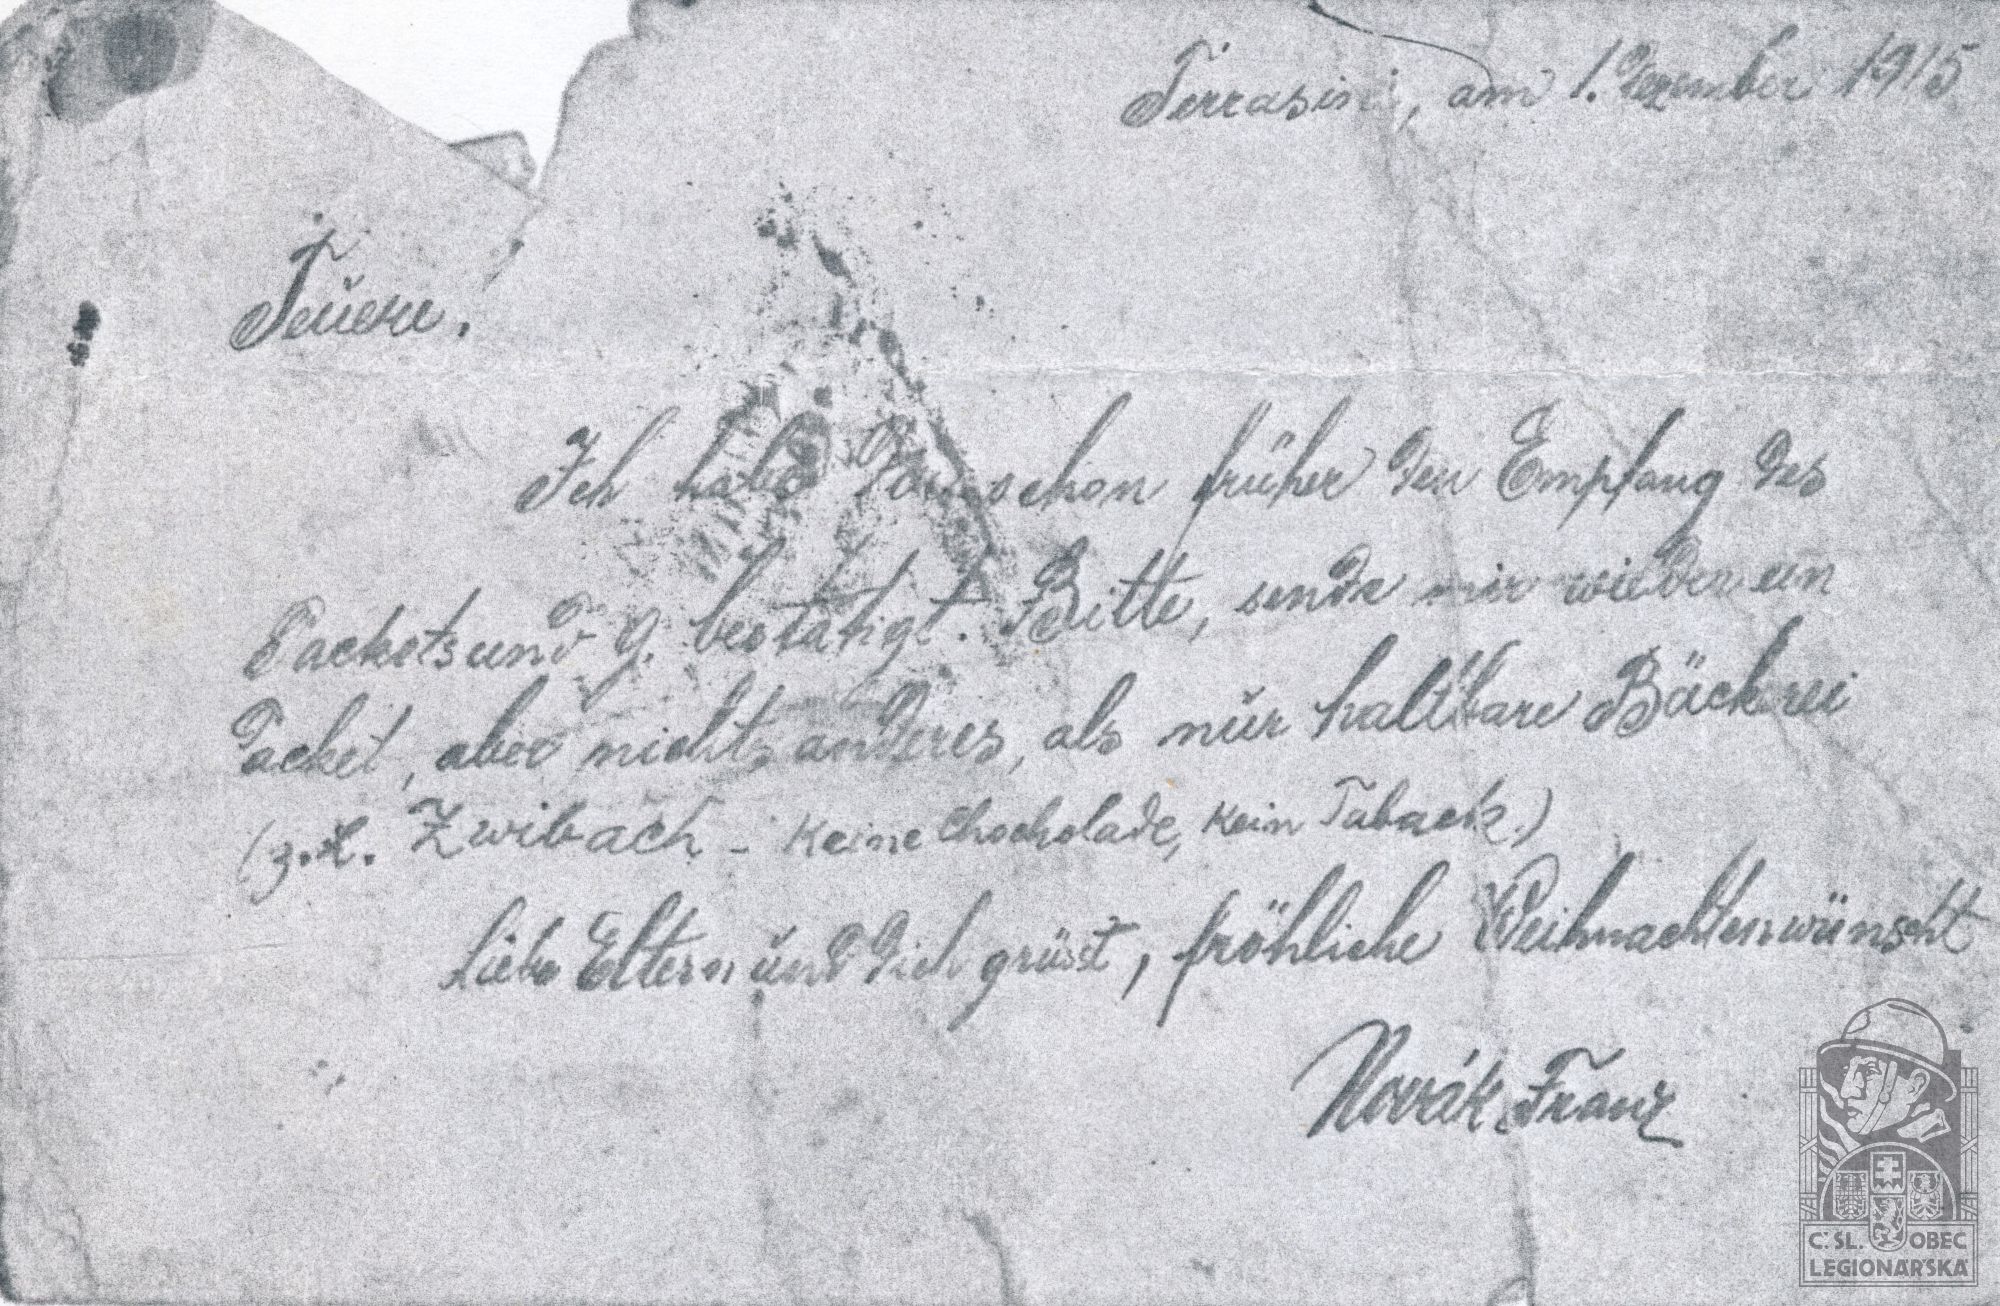 Terrasini, am 1. Dezember 1915
Teuere!
Ich habe schon früher den Empfang des
Packets und G. bestätigt. Bitte, sende mir wieder ein
Packet, aber nichts anderes, als nur haltbare Bäckerei
(z. B. Zwiback - keine Chockolade, kein Taback.)
Liebe Eltern und Dich grüsst, fröhliche Weihnachten wünscht
Novák Franz
Č. SL. OBEC
LEGIONÁŘSKÁ